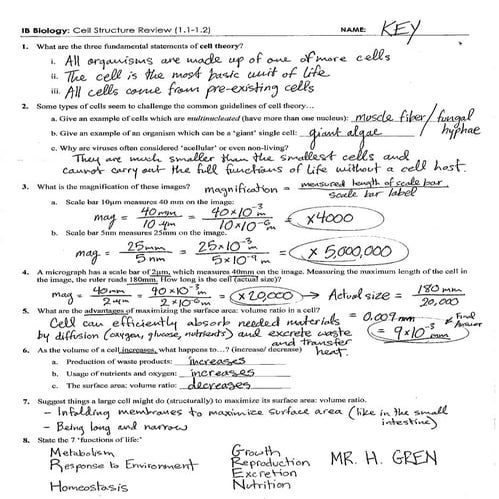 IB Biology: Cell Structure Review (1.1-1.2) NAME: KEY
1. What are the three fundamental statements of cell theory?
i. All organisms are made up of one of more cells
ii. The cell is the most basic unit of life
iii. All cells come from pre-existing cells
2. Some types of cells seem to challenge the common guidelines of cell theory…
a. Give an example of cells which are multinucleated (have more than one nucleus): muscle fiber/fungal hyphae
b. Give an example of an organism which can be a 'giant' single cell: giant algae
c. Why are viruses often considered 'acellular' or even non-living?
They are much smaller than the smallest cells and
cannot carry out the full functions of life without a cell host.
3. What is the magnification of these images? magnification = measured length of scale bar / scale bar label
a. Scale bar 10µm measures 40 mm on the image:
mag = 40mm / 10µm = 40×10⁻³m / 10×10⁻⁶m = ×4000
b. Scale bar 5nm measures 25mm on the image.
mag = 25mm / 5nm = 25×10⁻³m / 5×10⁻⁹m = × 5,000,000
4. A micrograph has a scale bar of 2µm, which measures 40mm on the image. Measuring the maximum length of the cell in
the image, the ruler reads 180mm. How long is the cell (actual size)?
mag = 40mm / 2µm = 40×10⁻³m / 2×10⁻⁶m = ×20,000 → Actual size = 180mm / 20,000
= 0.009mm
= 9×10⁻³mm Final Answer
5. What are the advantages of maximizing the surface area: volume ratio in a cell?
Cell can efficiently absorb needed materials
by diffusion (oxygen, glucose, nutrients) and excrete waste
and transfer
heat.
6. As the volume of a cell increases, what happens to…? (increase/ decrease)
a. Production of waste products: increases
b. Usage of nutrients and oxygen: increases
c. The surface area: volume ratio: decreases
7. Suggest things a large cell might do (structurally) to maximize its surface area: volume ratio.
- Infolding membranes to maximize surface area (like in the small intestine)
- Being long and narrow
8. State the 7 'functions of life:'
Metabolism Growth
Response to Environment Reproduction MR. H. GREN
Excretion
Homeostasis Nutrition